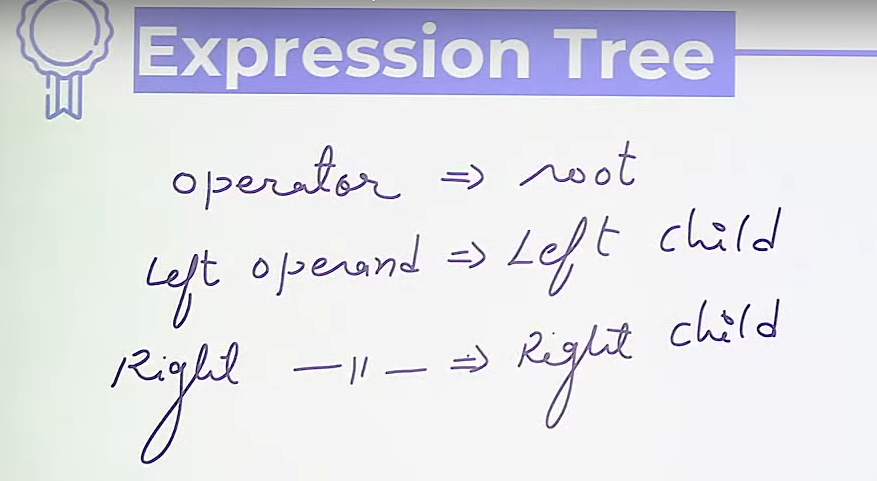 Expression Tree
operator ⇒ root
Left operand ⇒ Left child
Right —〃— ⇒ Right child